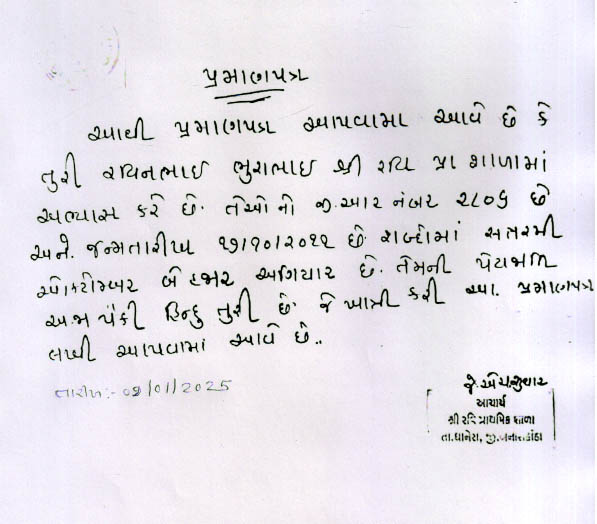 પ્રમાણપત્ર
આથી પ્રમાણપત્ર આપવામા આવે છે કે
તુરી રવિનભાઈ ભુરાભાઈ શ્રી રવિ પ્રા શાળામાં
અભ્યાસ કરે છે. તેઓ નો જી.આર નંબર ૨૮૦૬ છે
અને. જન્મતારીખ ૧૭/૧૦/૨૦૧૧ છે. શબ્દોમાં સતરમી
ઓક્ટોમ્બર બે હજાર અગિયાર છે. તેમની પેટાજાતિ
અ.જા પૈકી હિન્દુ તુરી છે. જે ખાત્રી કરી આ. પ્રમાણપત્ર
લખી આપવામાં આવે છે..
તારીખ:- 09/01/2025
આચાર્ય
શ્રી રવિ પ્રાથમિક શાળા
તા.ધાનેરા, જી.બનાસકાંઠા